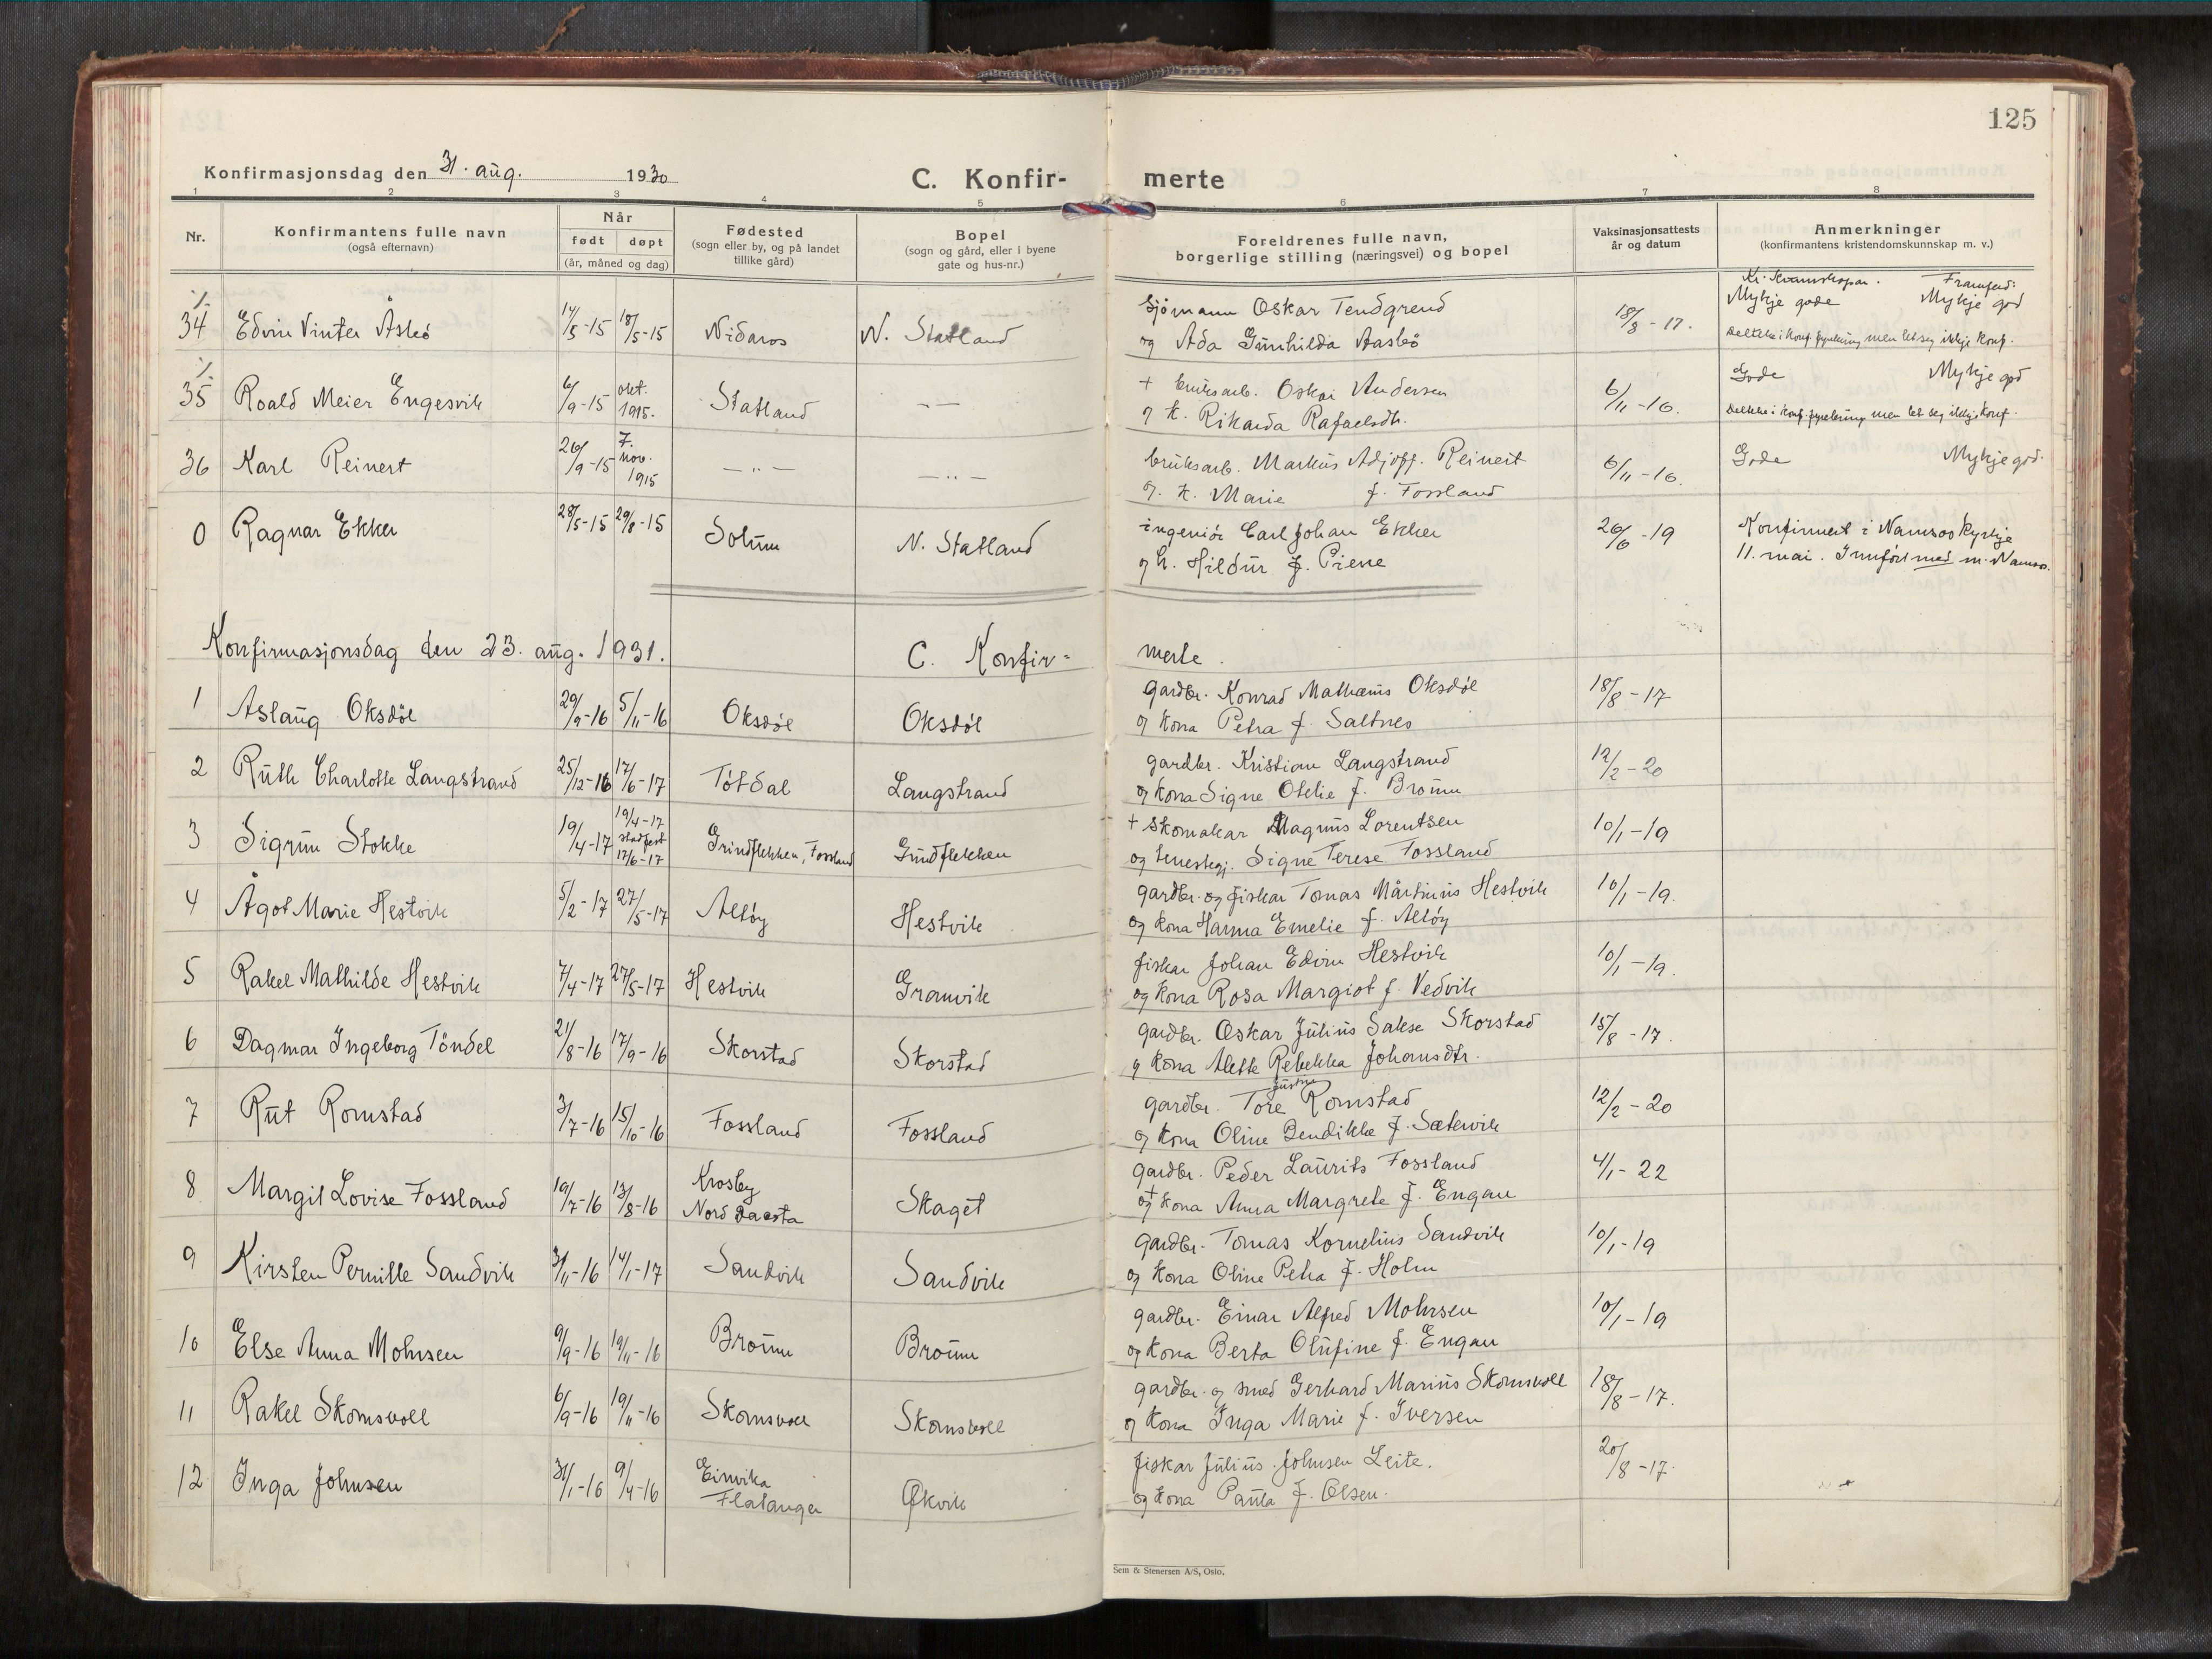 125
Konfirmasjonsdag den 31. aug. 1930
C. Konfir- merte
1 2 3 4 5 6 7 8
Nr.
Konfirmantens fulle navn
(også efternavn)
Når
født døpt
(år, måned og dag)
Fødested
(sogn eller by, og på landet
tillike gård)
Bopel
(sogn og gård, eller i byene
gate og hus-nr.)
Foreldrenes fulle navn,
borgerlige stilling (næringsvei) og bopel
Vaksinasjonsattests
år og datum
Anmerkninger
(konfirmantens kristendomskunnskap m. v.)
Kr. kunnskapar. Framferd:
34 Edvin Vinter Åsbø 14/5-15 18/5-15 Nidaros N. Statland Sjömann Oskar Tendgrend 18/8-17. Mykje gode Mykje god
og Ada Gunhilda Aasbø men let seg ikkje konf.
35 Roald Meier Engesvik 6/9-15 okt. 1915. Statland — — + bruksarb. Oskar Andersen 6/11-16. Gode Mykje god
og k. Rikarda Rafaelsdtr. men let seg ikkje konf.
36 Karl Reinert 26/9-15 7. nov. 1915 — " — — " — bruksarb. Markus Adjoff. Reinert 6/11-16. Gode Mykje god.
og. k. Marie f. Fossland
0 Ragnar Ekker 28/5-15 29/8-15 Solum N. Statland ingeniør Carl Johan Ekker 26/6-19 Konfirmert i Namsos kyrkje
og h. Hildur f. Piene 11. mai. Innført med m. Namsos.
Konfirmasjonsdag den 23. aug. 1931. C. Konfir- merte.
1 Aslaug Oksdøl 29/9-16 5/11-16 Oksdøl Oksdøl gardbr. Konrad Mathæus Oksdøl 18/8-17
og kona Petra f. Saltnes
2 Ruth Charlotte Langstrand 25/12-16 17/6-17 Tøtdal Langstrand gardbr. Kristian Langstrand 12/2-20
og kona Signe Otelie f. Bromu
3 Sigrun Stokke 19/4-17 19/4-17 stadfest 17/6-17 Grindflekken, Fossland Grindflekken + Skomakar Magnus Lorentsen 10/1-19
og tenestegj. Signe Terese Fossland
4 Ågot Marie Hestvik 5/2-17 27/5-17 Altøy Hestvik gardbr. og fiskar Tomas Mårtinus Hestvik 10/1-19.
og kona Hanna Emelie f. Altøy
5 Rakel Mathilde Hestvik 7/4-17 27/5-17 Hestvik Granvik fiskar Johan Edvin Hestvik 10/1-19.
og kona Rosa Margiot f. Vedvik
6 Dagmar Ingeborg Töndel 21/8-16 17/9-16 Skorstad Skorstad gardbr. Oskar Julius Sakse Skorstad 15/8-17.
og kona Alette Rebekka Johansdtr.
7 Rut Romstad 3/7-16 15/10-16 Fossland Fossland gardbr. Tore Justin Romstad 12/2-20
og kona Oline Bendikke f. Sætervik
8 Margit Lovise Fossland 19/7-16 13/8-16 Krosby Nord Dacota Skaget gardbr. Peder Laurits Fossland 4/1-22
og + kona Anna Margrete f. Engan
9 Kirsten Pernille Sandvik 3/11-16 14/1-17 Sandvik Sandvik gardbr. Tomas Kornelius Sandvik 10/1-19
og kona Oline Petra f. Holm
10 Else Anna Mohrsen 9/9-16 19/11-16 Bromu Bromu gardbr. Einar Alfred Mohrsen 10/1-19
og kona Berta Olufine f. Engan
11 Rakel Skomsvoll 6/9-16 19/11-16 Skomsvoll Skomsvoll gardbr. og smed Gerhard Marius Skomsvoll 18/8-17.
og kona Inga Marie f. Iversen
12 Inga Johnsen 31/1-16 9/4-16 Einvika Flatanger Økvik fiskar Julius Johnsen Leite. 20/8-17.
og kona Paula f. Olsen.
Sem & Stenersen A/S, Oslo.